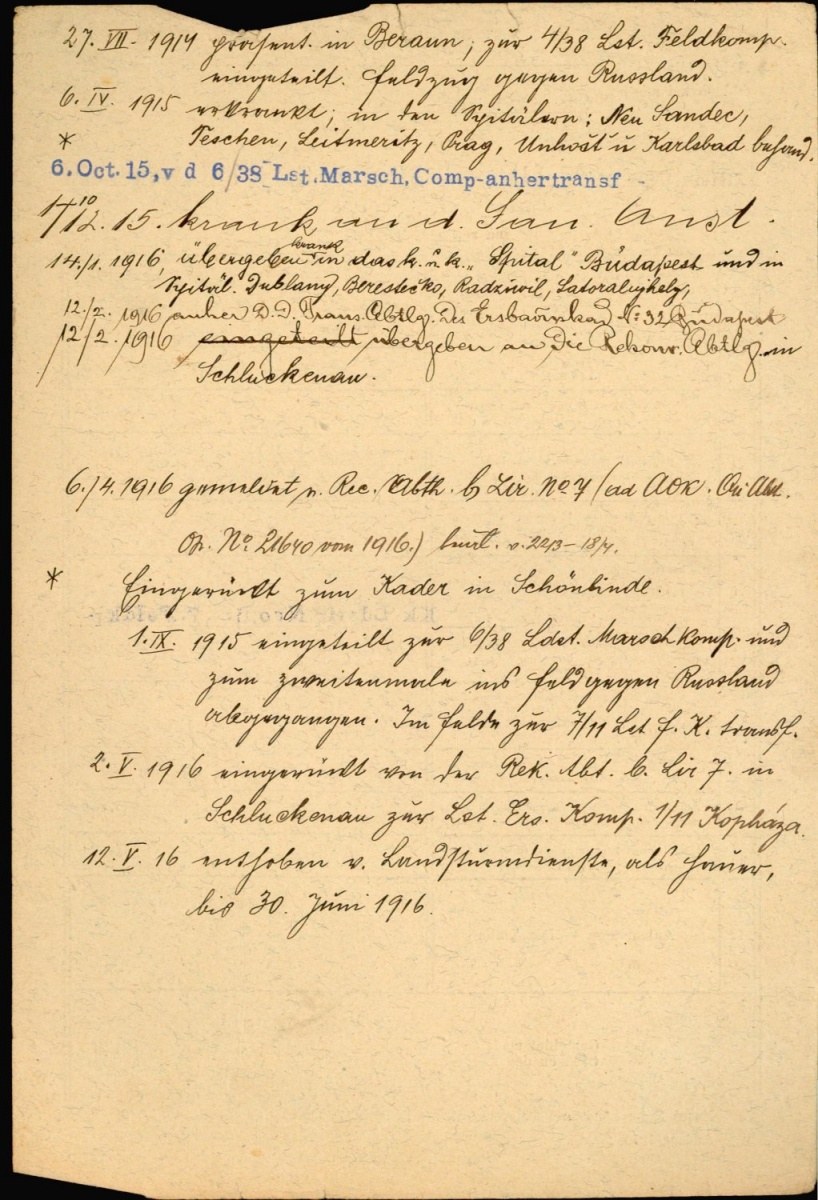 27. VII. 1914 präsent. in Beraun; zur 4/38 Lst. Feldkomp.
eingeteilt. Feldzug gegen Russland.
6. IV. 1915 erkrankt; in den Spitälern: Neu Sandec,
* Teschen, Leitmeritz, Prag, Unhošť u Karlsbad behand.
6.Oct.15, v d 6/38 Lst.Marsch.Comp-anhertransf -
12. 15. krank an d. San. Anst.
14./1. 1916, übergeben krank in das k. u. k. „Spital" Budapest und in
Spitäl. Dublany, Berestecko, Radziwil, Satoraliujhely,
12./2. 1916 anher D.D. Trans. Abtlg. des No: 32 Budapest
12/2. 1916 eingeteilt übergeben an die Rekonv. Abtlg. in
Schluckenau.
6./4. 1916 gemeldet v. Rec. Abth. b Lir. No 7 (ad AOK.
Op. No. 21640 vom 1916.) beurl. v. 22/3 - 18/4.
* Eingerückt zum Kader in Schönlinde.
1. IX. 1915 eingeteilt zur 6/38 Ldst. Marschkomp. und
zum zweitenmale ins Feld gegen Russland
abgegangen. Im Felde zur 7/11 Lst F. K. transf.
2. V. 1916 eingerückt von der Rek. Abt. b. Lir 7. in
Schluckenau zur Lst. Ers. Komp. 1/11 Kopháza.
12. V. 16 enthoben v. Landsturmdienste, als Hauer,
bis 30. Juni 1916.